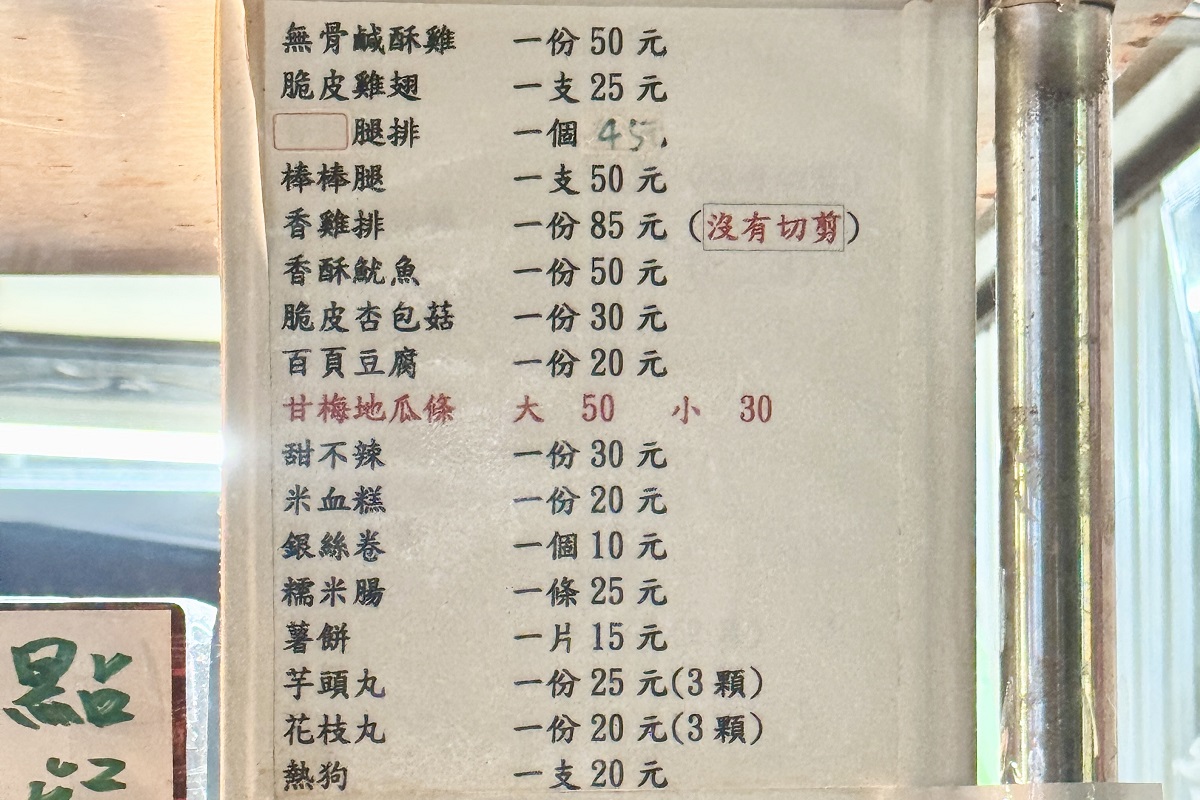 無骨鹹酥雞 一份 50 元
脆皮雞翅 一支 25 元
腿排 一個 45元
棒棒腿 一支 50 元
香雞排 一份 85 元 (沒有切剪)
香酥魷魚 一份 50 元
脆皮杏包菇 一份 30 元
百頁豆腐 一份 20 元
甘梅地瓜條 大 50 小 30
甜不辣 一份 30 元
米血糕 一份 20 元
銀絲卷 一個 10 元
糯米腸 一條 25 元
薯餅 一片 15 元
芋頭丸 一份 25 元(3 顆)
花枝丸 一份 20 元(3 顆)
熱狗 一支 20 元
點